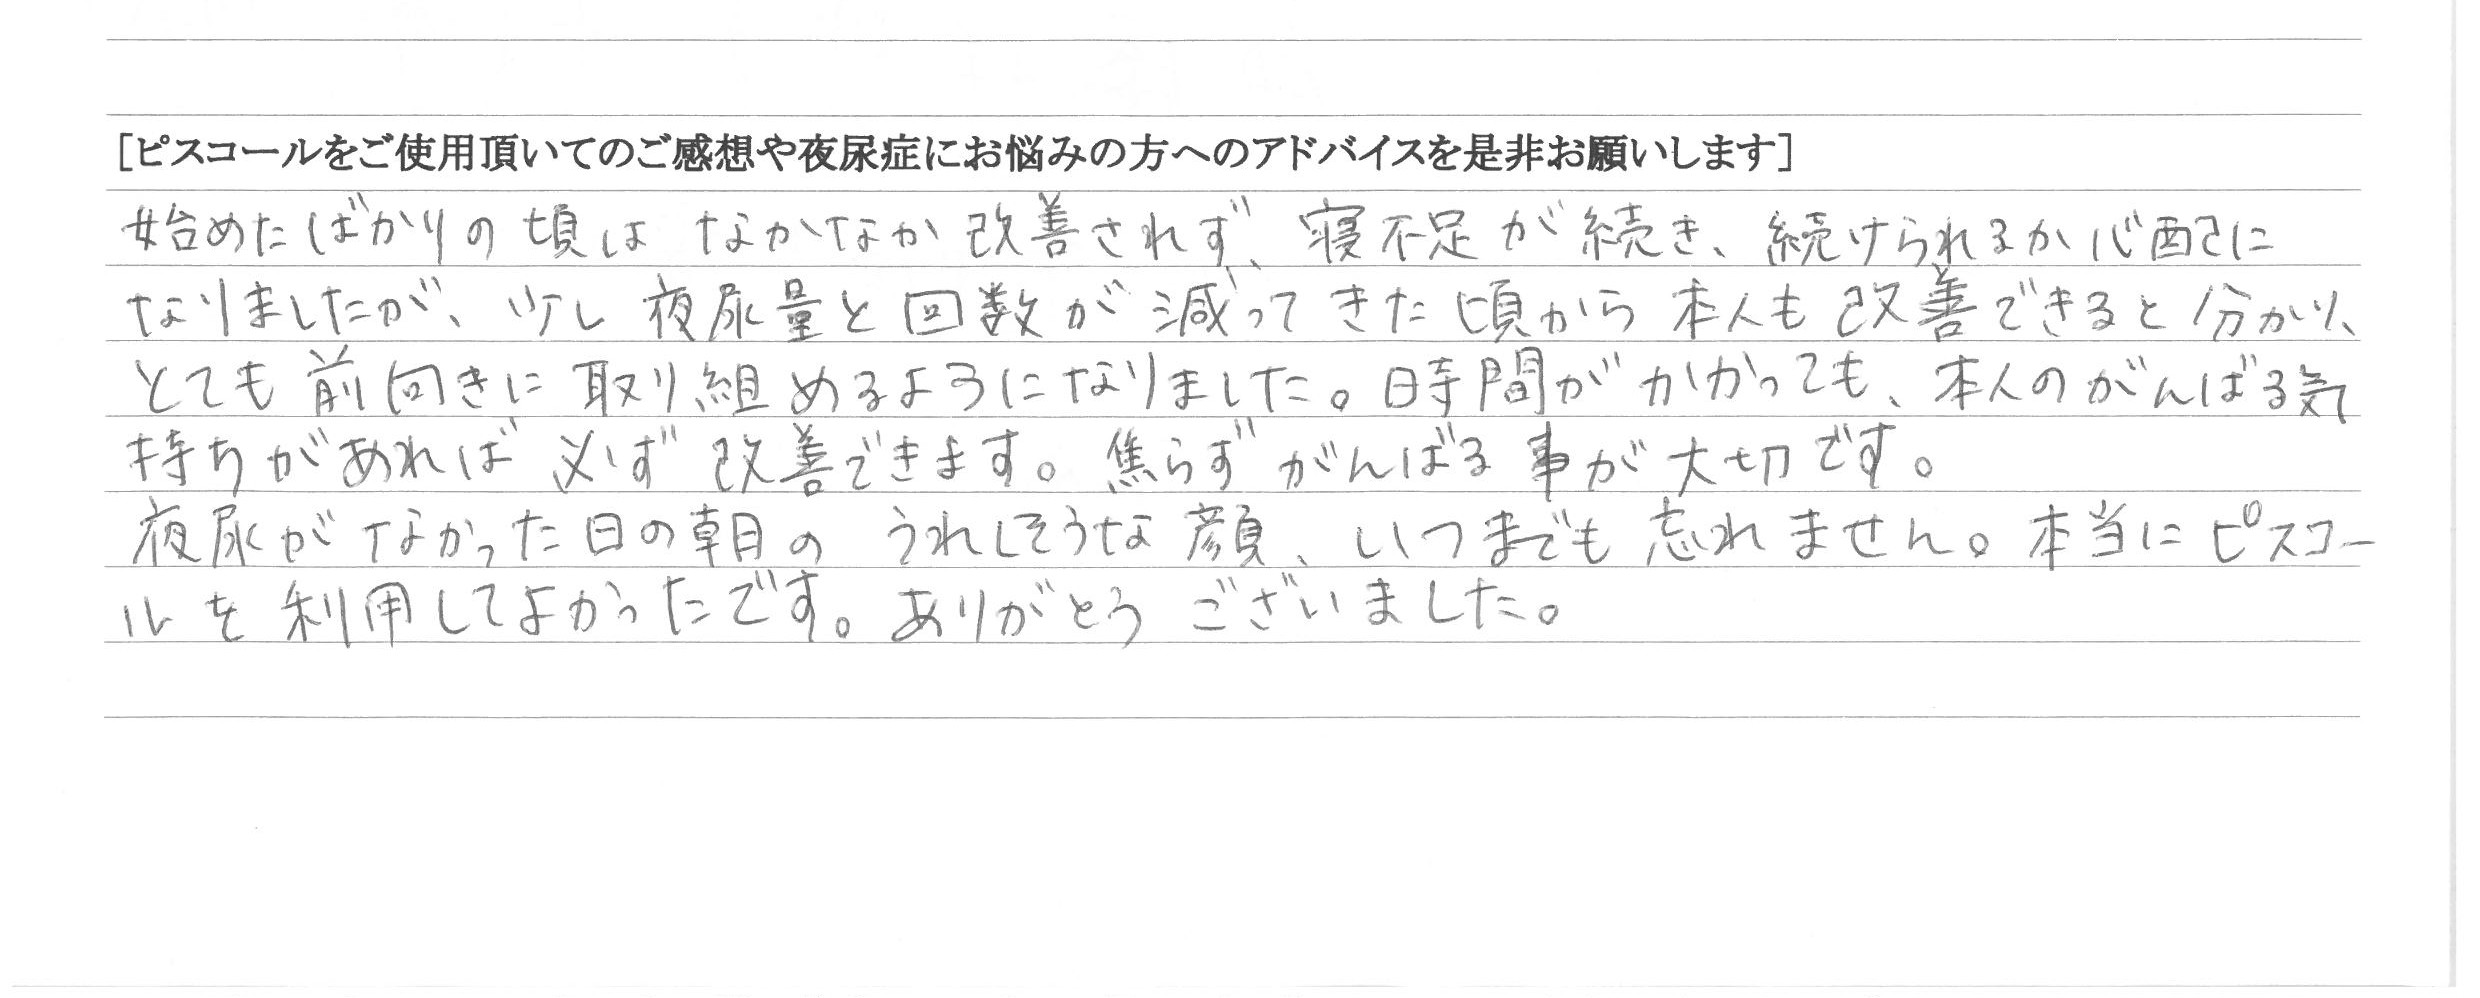 [ピスコールをご使用頂いてのご感想や夜尿症にお悩みの方へのアドバイスを是非お願いします]
始めたばかりの頃は なかなか改善されず、寝不足が続き、続けられるか心配に
なりましたが、少し夜尿量と回数が減ってきた頃から本人も改善できると分かり、
とても前向きに取り組めるようになりました。時間がかかっても、本人のがんばる気
持ちがあれば必ず改善できます。焦らずがんばる事が大切です。
夜尿がなかった日の朝の うれしそうな顔、いつまでも忘れません。本当にピスコー
ルを利用してよかったです。ありがとうございました。